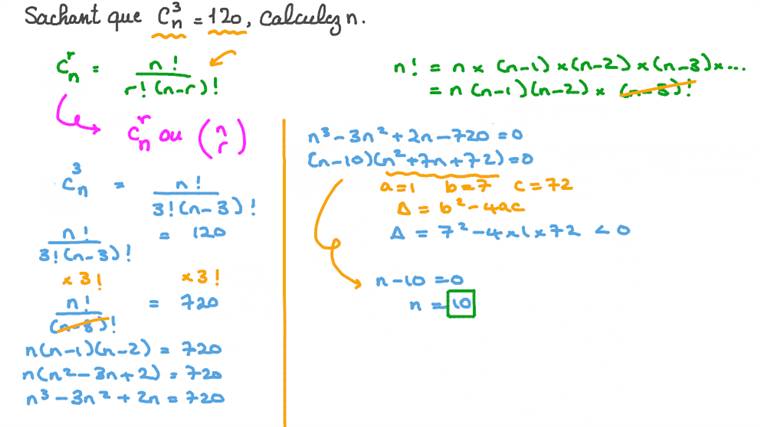 Sachant que C_n^3 = 120, calculez n.
C_n^r = n! / r!(n-r)!
C_n^r ou (n r)
n! = n × (n-1) × (n-2) × (n-3) × ...
= n(n-1)(n-2) × (n-3)!
C_n^3 = n! / 3!(n-3)!
n! / 3!(n-3)! = 120
×3! ×3!
n! / (n-3)! = 720
n(n-1)(n-2) = 720
n(n²-3n+2) = 720
n³-3n²+2n = 720
n³-3n²+2n-720=0
(n-10)(n²+7n+72)=0
a=1 b=7 c=72
Δ = b²-4ac
Δ = 7²-4×1×72 < 0
n-10=0
n=10